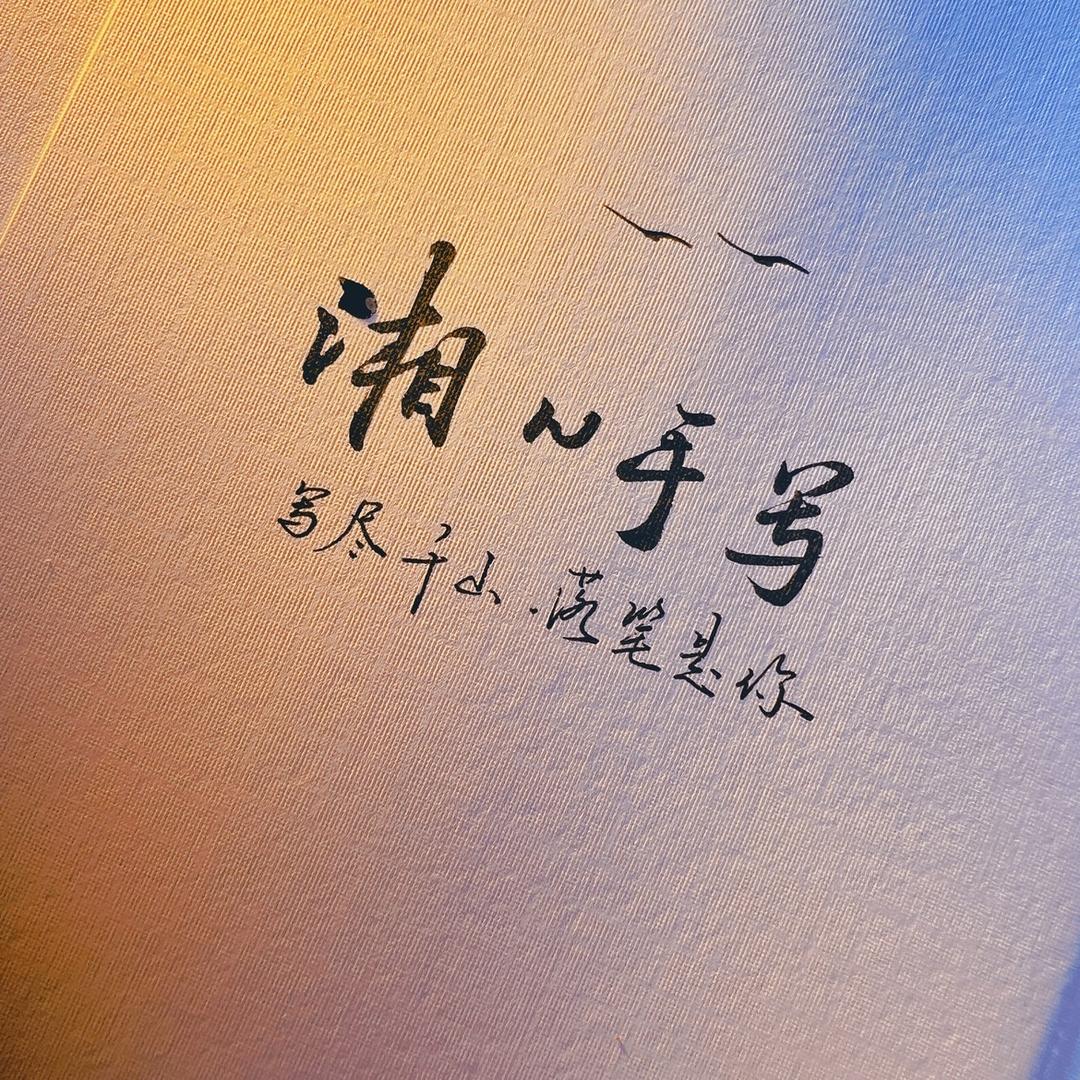 湘~手写
写尽千山.落笔是你